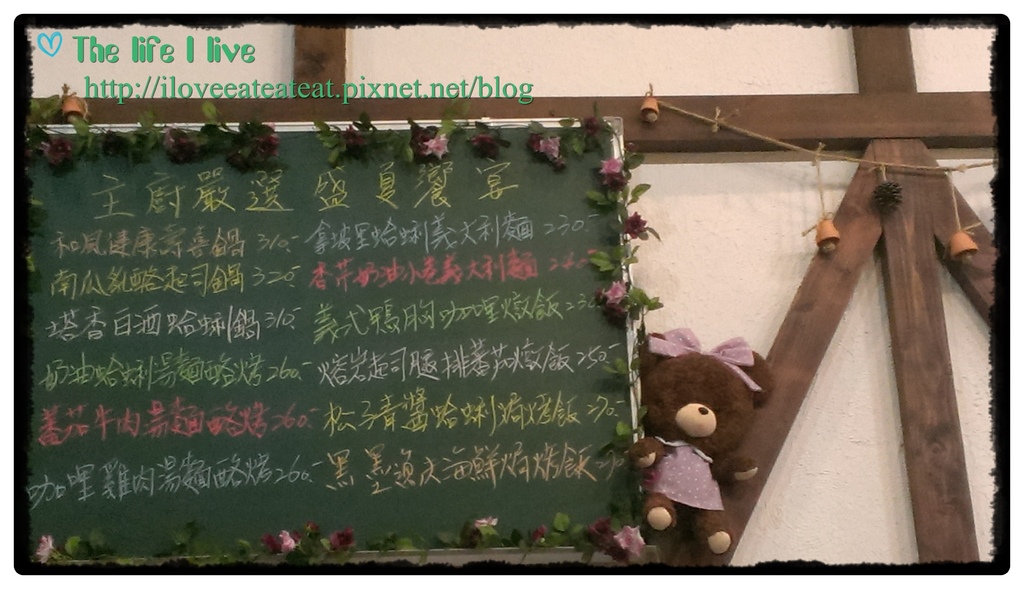 The life I live
http://iloveeateateat.pixnet.net/blog
主廚嚴選 盛夏饗宴
和風健康壽喜鍋 310.-
南瓜乳酪起司鍋 320.-
塔香白酒蛤蜊鍋 310.-
奶油蛤蜊湯麵酪烤 260.-
蕃茄牛肉湯麵酪烤 260.-
咖哩雞肉湯麵酪烤 260.-
拿坡里蛤蜊義大利麵 230.-
香芹奶油小卷義大利麵
義式鴨胸咖哩燉飯 23
熔岩起司腿排蕃茄燉飯 250.-
松子青醬蛤蜊焗烤飯 270.-
黑墨漁夫海鮮焗烤飯